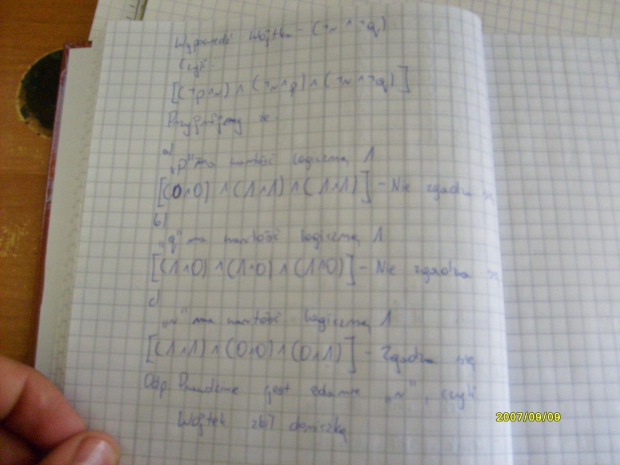 Wypowiedź Wojtka - (¬r ∧ ¬q)
Czyli:
[(¬p∧r) ∧ (¬r∧p) ∧ (¬r∧¬q)]
Przyjmijmy że
a)
„p" ma wartość logiczną 1
[(0∧0) ∧ (1∧1) ∧ (1∧1)] - Nie zgadza się
b)
„q" ma wartość logiczną 1
[(1∧0) ∧ (1∧0) ∧ (1∧0)] - Nie zgadza się
c)
„r" ma wartość logiczną 1
[(1∧1) ∧ (0∧0) ∧ (0∧1)] - Zgadza się
Odp. Prawdziwe jest zdanie „r", czyli
Wojtek zbił doniczkę
2007/09/09